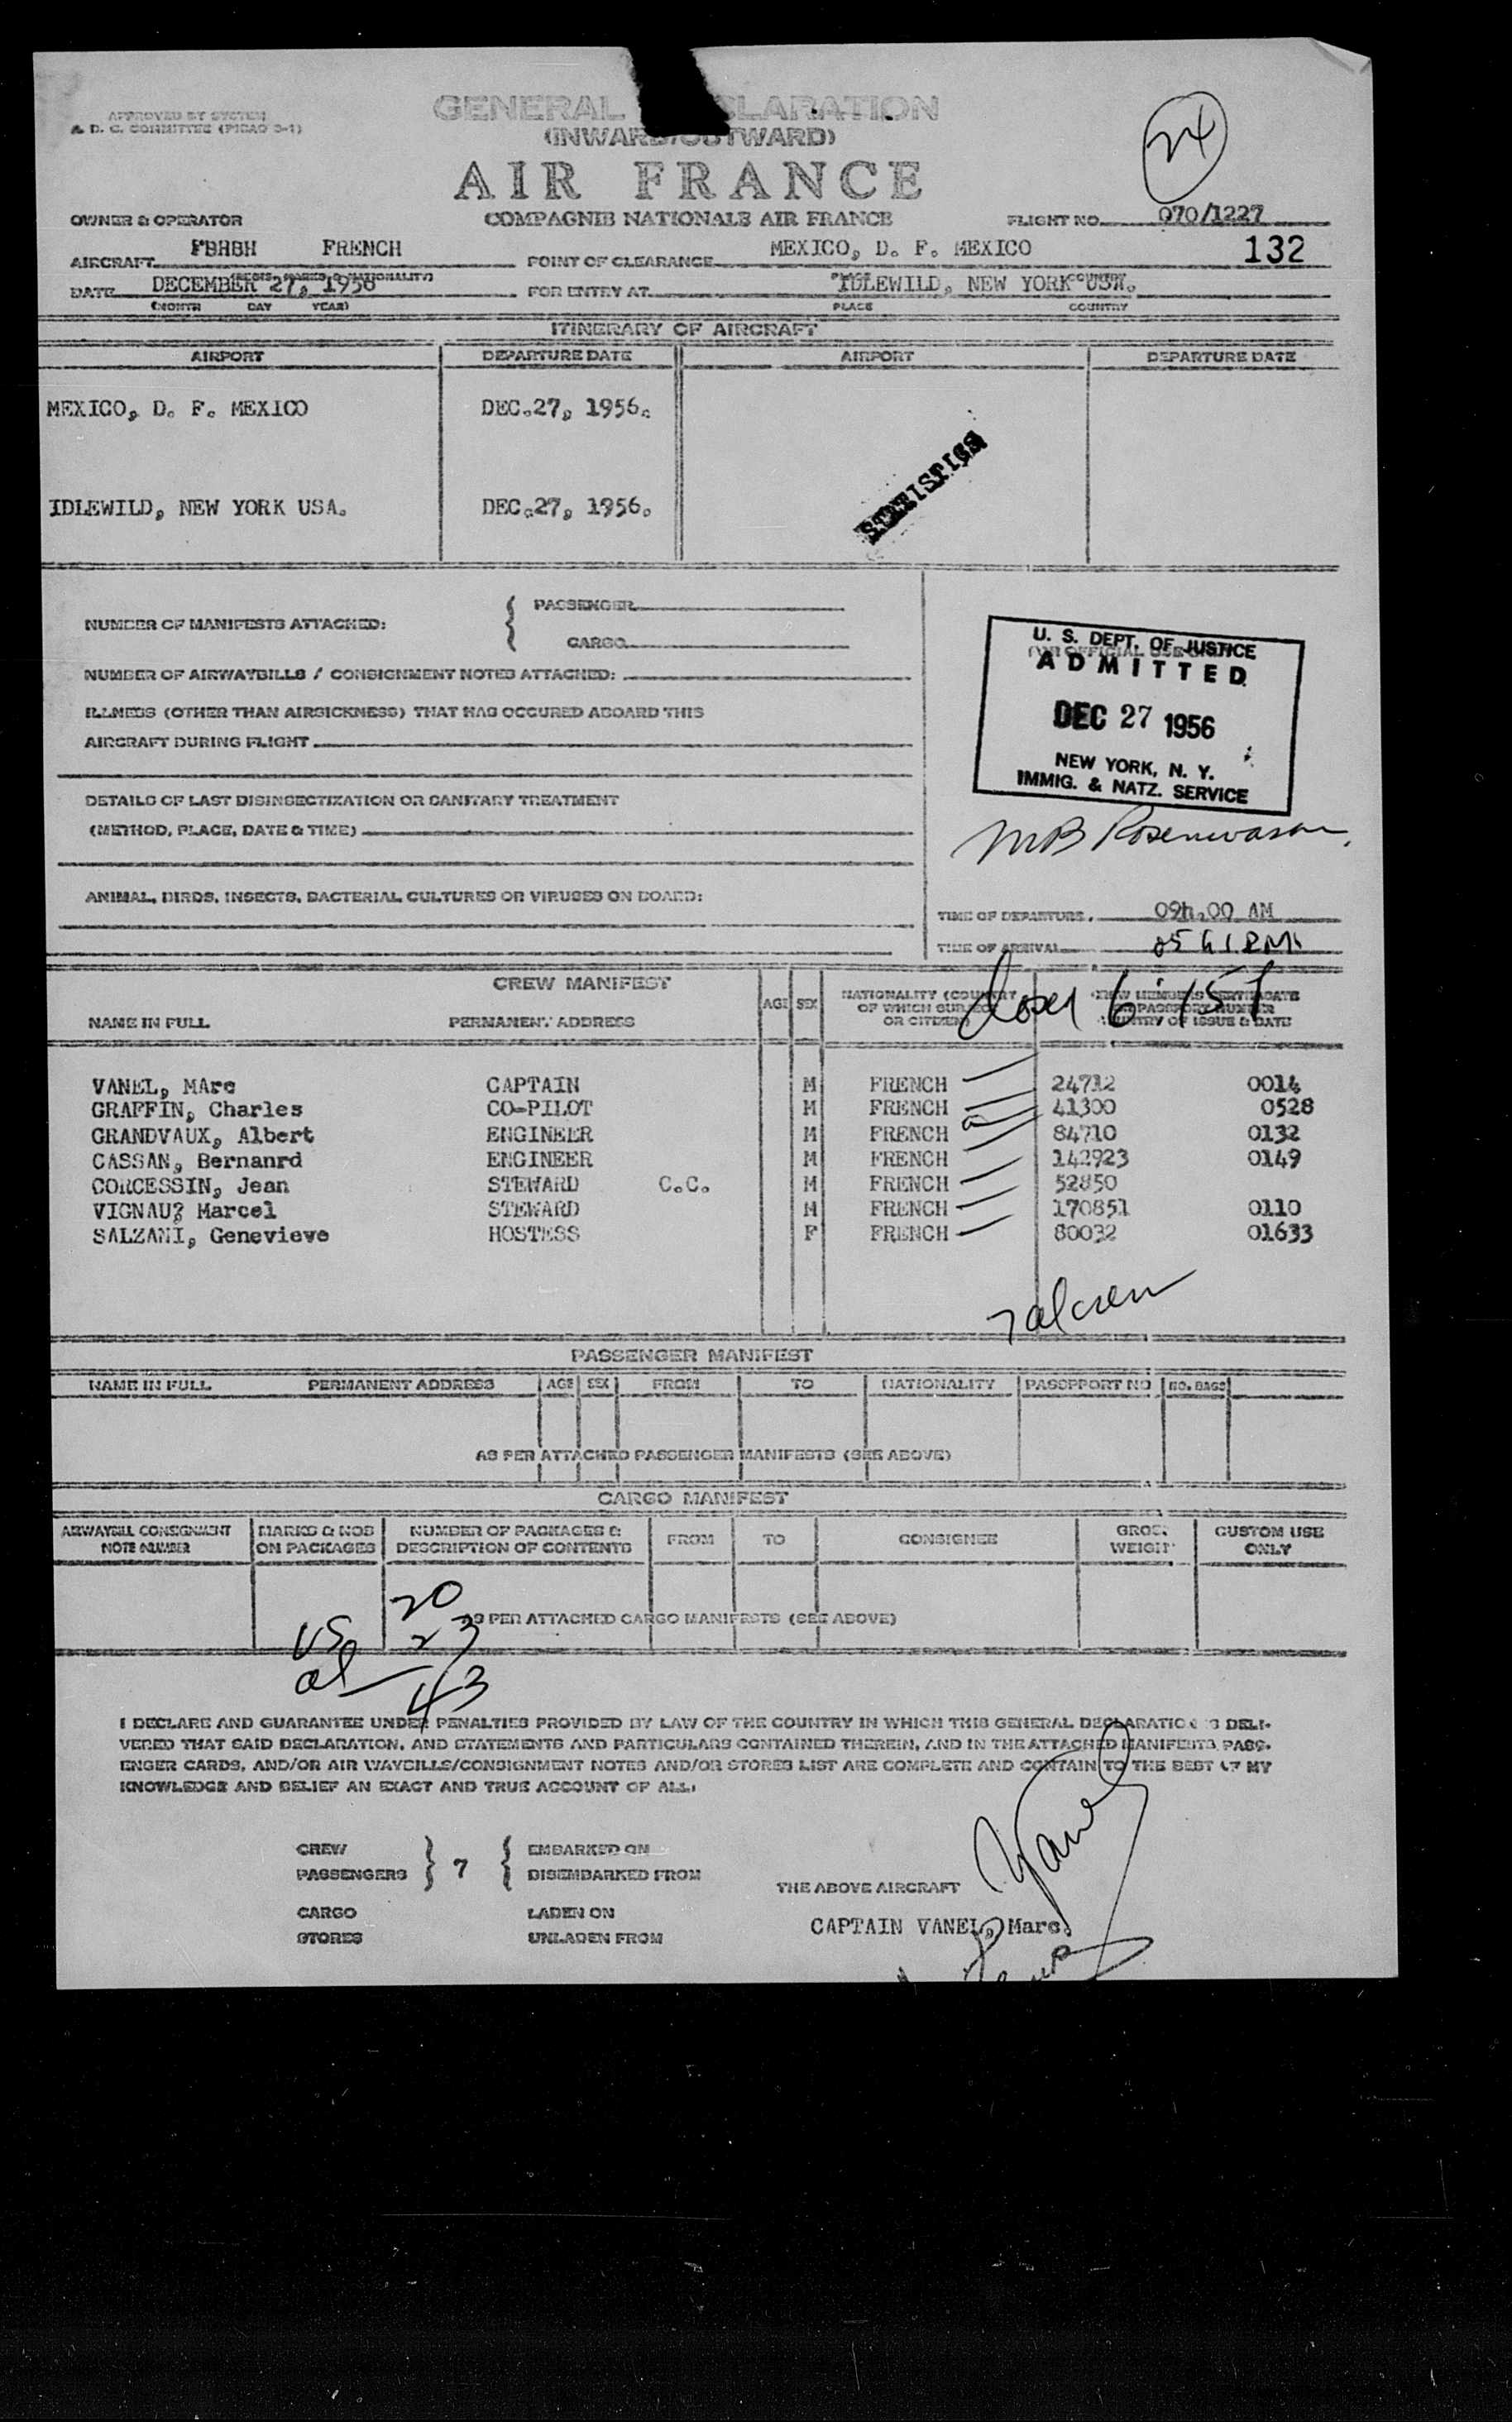 APPROVED BY SYSTEM
& D. C. COMMITTEE (PICAO 3-1)
GENERAL CLARATION
(INWARD/OUTWARD)
24
AIR FRANCE
OWNER & OPERATOR COMPAGNIE NATIONALE AIR FRANCE FLIGHT NO. 070/1227
AIRCRAFT FBHBH FRENCH POINT OF CLEARANCE MEXICO, D. F. MEXICO 132
(REGIS. MARKS & NATIONALITY) PLACE COUNTRY
DATE DECEMBER 27, 1956 FOR ENTRY AT IDLEWILD, NEW YORK USA.
(MONTH DAY YEAR) PLACE COUNTRY
ITINERARY OF AIRCRAFT
AIRPORT DEPARTURE DATE AIRPORT DEPARTURE DATE
MEXICO, D. F. MEXICO DEC.27, 1956.
STATISTICS
IDLEWILD, NEW YORK USA. DEC.27, 1956.
NUMBER OF MANIFESTS ATTACHED: { PASSENGER
CARGO
NUMBER OF AIRWAYBILLS / CONSIGNMENT NOTES ATTACHED:
ILLNESS (OTHER THAN AIRSICKNESS) THAT HAS OCCURED ABOARD THIS
AIRCRAFT DURING FLIGHT
DETAILS OF LAST DISINSECTIZATION OR SANITARY TREATMENT
(METHOD, PLACE, DATE & TIME)
ANIMAL, BIRDS, INSECTS, BACTERIAL CULTURES OR VIRUSES ON BOARD:
FOR OFFICIAL USE ONLY
U. S. DEPT. OF JUSTICE
ADMITTED
DEC 27 1956
NEW YORK, N. Y.
IMMIG. & NATZ. SERVICE
MB Rosenwasser
TIME OF DEPARTURE. 09h.00 AM
TIME OF ARRIVAL
CREW MANIFEST
NAME IN FULL PERMANENT ADDRESS AGE SEX NATIONALITY (COUNTRY
OF WHICH SUBJECT
OR CITIZEN) CREW MEMBERS CERTIFICATE
PASSPORT NUMBER
COUNTRY OF ISSUE & DATE
VANEL, MArc CAPTAIN M FRENCH 24712 0014
GRAFFIN, Charles CO-PILOT M FRENCH 41300 0528
GRANDVAUX, Albert ENGINEER M FRENCH 84710 0132
CASSAN, Bernanrd ENGINEER M FRENCH 142923 0149
CORCESSIN, Jean STEWARD C.C. M FRENCH 52850
VIGNAU? Marcel STEWARD M FRENCH 170851 0110
SALZANI, Genevieve HOSTESS F FRENCH 80032 01633
7 al crew
PASSENGER MANIFEST
NAME IN FULL PERMANENT ADDRESS AGE SEX FROM TO NATIONALITY PASSPPORT NO NO. BAGS
AS PER ATTACHED PASSENGER MANIFESTS (SEE ABOVE)
CARGO MANIFEST
AIRWAYBILL CONSIGNMENT
NOTE NUMBER MARKS & NOS
ON PACKAGES NUMBER OF PACKAGES &
DESCRIPTION OF CONTENTS FROM TO CONSIGNEE GROSS
WEIGHT CUSTOM USE
ONLY
AS PER ATTACHED CARGO MANIFESTS (SEE ABOVE)
US 20
al 23
43
I DECLARE AND GUARANTEE UNDER PENALTIES PROVIDED BY LAW OF THE COUNTRY IN WHICH THIS GENERAL DECLARATION IS DELI-
VERED THAT SAID DECLARATION, AND STATEMENTS AND PARTICULARS CONTAINED THEREIN, AND IN THE ATTACHED MANIFESTS, PASS-
ENGER CARDS, AND/OR AIR WAYBILLS/CONSIGNMENT NOTES AND/OR STORES LIST ARE COMPLETE AND CONTAIN TO THE BEST OF MY
KNOWLEDGE AND BELIEF AN EXACT AND TRUE ACCOUNT OF ALL:
CREW EMBARKED ON
PASSENGERS } 7 { DISEMBARKED FROM
THE ABOVE AIRCRAFT Vanel
CARGO LADEN ON
STORES UNLADEN FROM
CAPTAIN VANEL, Marc.